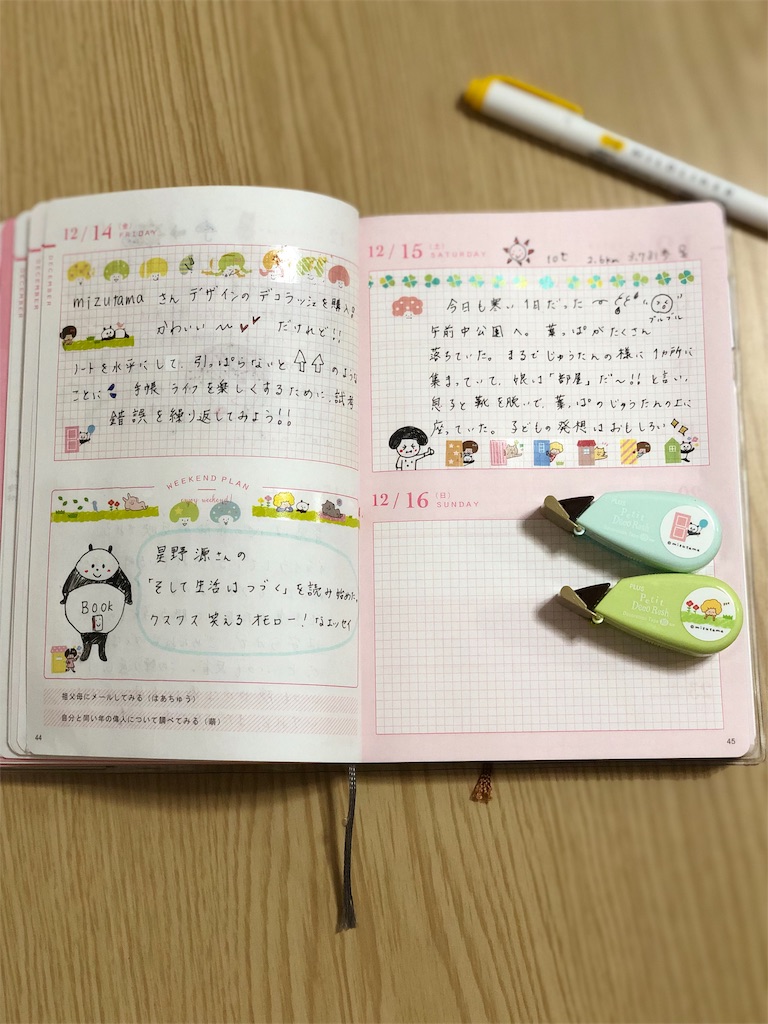 12/14 (金) FRIDAY
mizutama さん デザインの デコラッシュを購入。
かわいい 〜 だけれど!!
ノートを水平にして、引っぱらないと のような
ことに 手帳 ライフを楽しくするために、試考
錯誤を繰り返してみよう!!
WEEKEND PLAN
enjoy weekend!
星野 源さんの
「そして生活はつづく」を読み始めた。
クスクス 笑える オモロー! なエッセイ
Book
祖父母にメールしてみる (はあちゅう)
自分と同い年の偉人について調べてみる (萠)
44
DECEMBER
DECEMBER
DECEMBER
12/15 (土) SATURDAY
10℃ 2.6km 3,731歩
今日も寒い1日だった
ブルブル
午前中公園へ。葉っぱがたくさん
落ちていた。まるでじゅうたんの様に1カ所に
集まっていて、娘は「部屋」だ〜!!と言い、
息子と靴を脱いで、葉っぱのじゅうたんの上に
座っていた。子どもの発想はおもしろい
12/16 (日) SUNDAY
45
PLUS
Petit
Deco Rush
©mizutama
PLUS
Petit
Deco Rush
©mizutama
MILDLINER